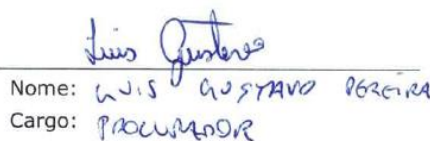 Luis Gustavo
Nome: LUIS GUSTAVO PEREIRA
Cargo: PROCURADOR